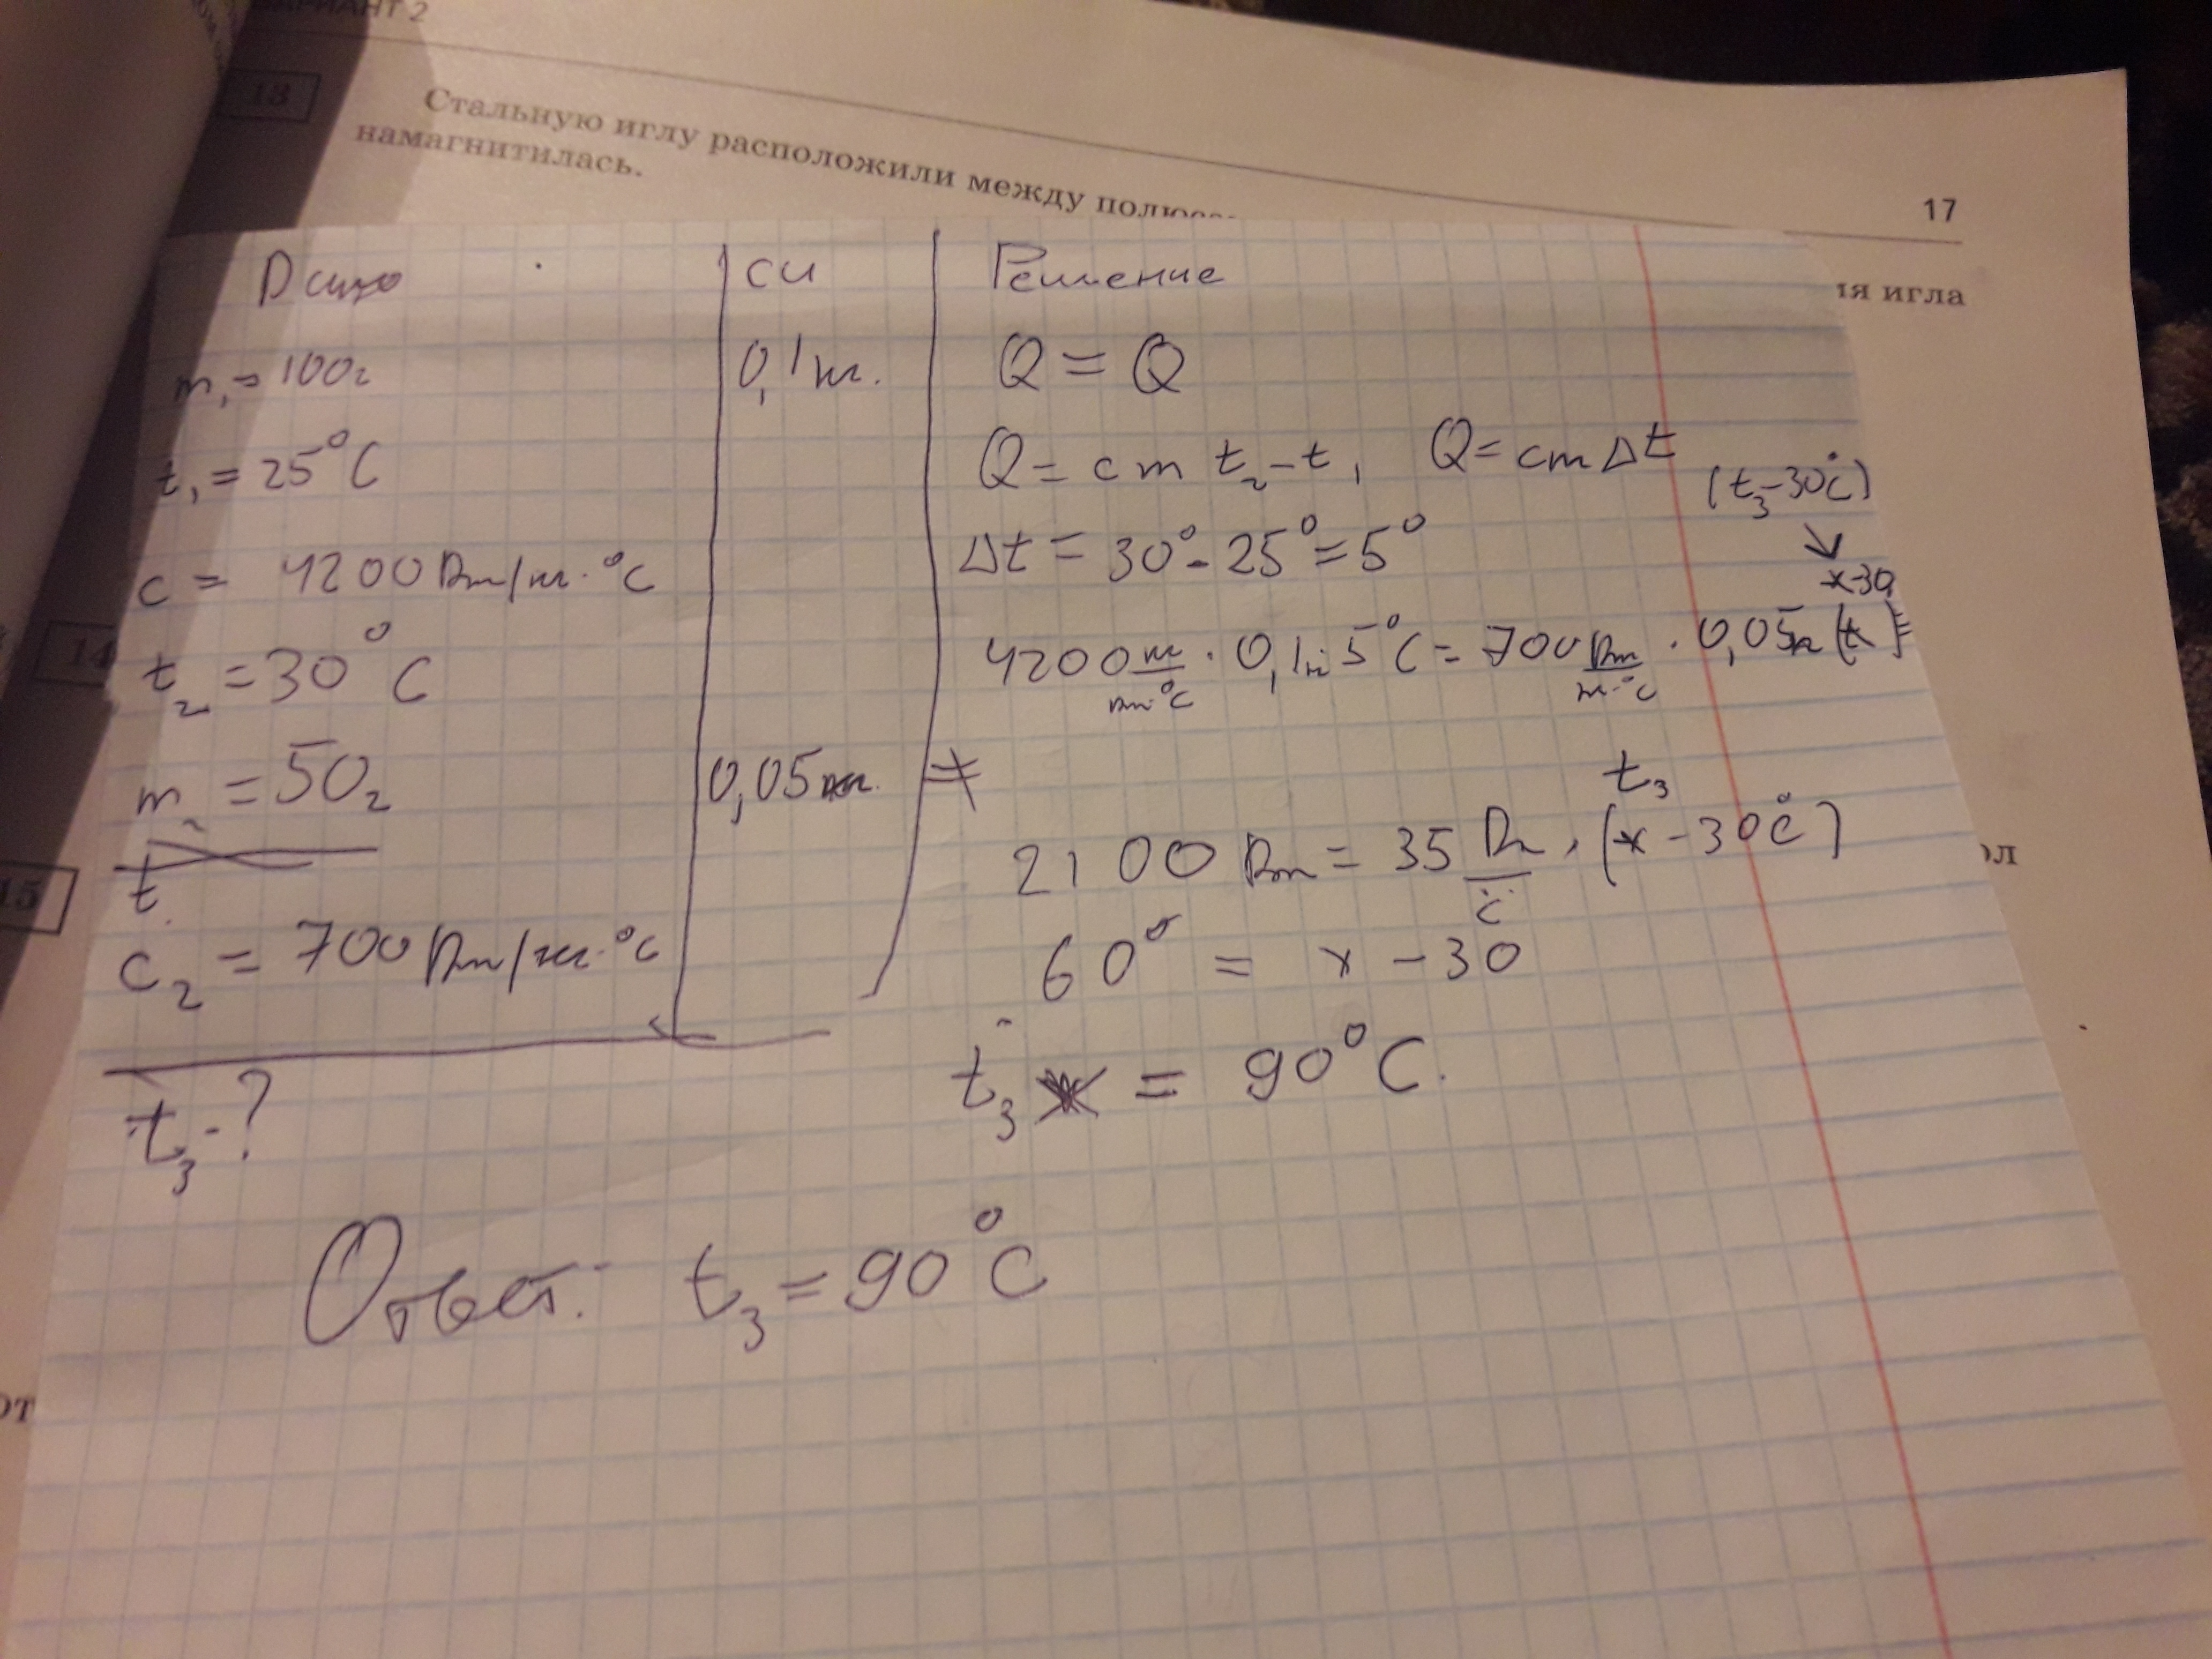 ВАРИАНТ 2
17
13
Стальную иглу расположили между полюса
намагнитилась.
ия игла
14
15
ол
от
Дано
m₁ = 100г
t₁ = 25°C
c = 4200 Дж/кг·°C
t₂ = 30°C
m₂ = 50г
t
c₂ = 700 Дж/кг·°C
t₃ - ?
СИ
0,1 кг.
0,05 кг.
Решение
Q = Q
Q = cm t₂ - t₁ Q = cm Δt
(t₃ - 30°C)
Δt = 30° - 25° = 5°
x-30
4200 кг/Дж·°C · 0,1кг 5°C = 700 Дж/кг·°C · 0,05кг (t₃) =
=>
t₃
2100 Дж = 35 Дж/°C · (x - 30°C)
60° = x - 30
t₃ = 90°C.
Ответ: t₃ = 90°C